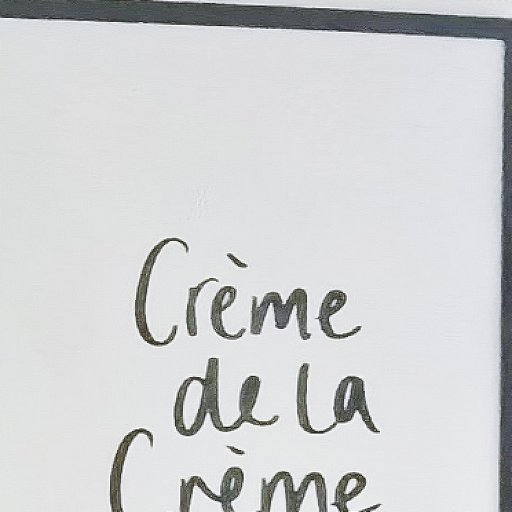 Crème
de la
Crème